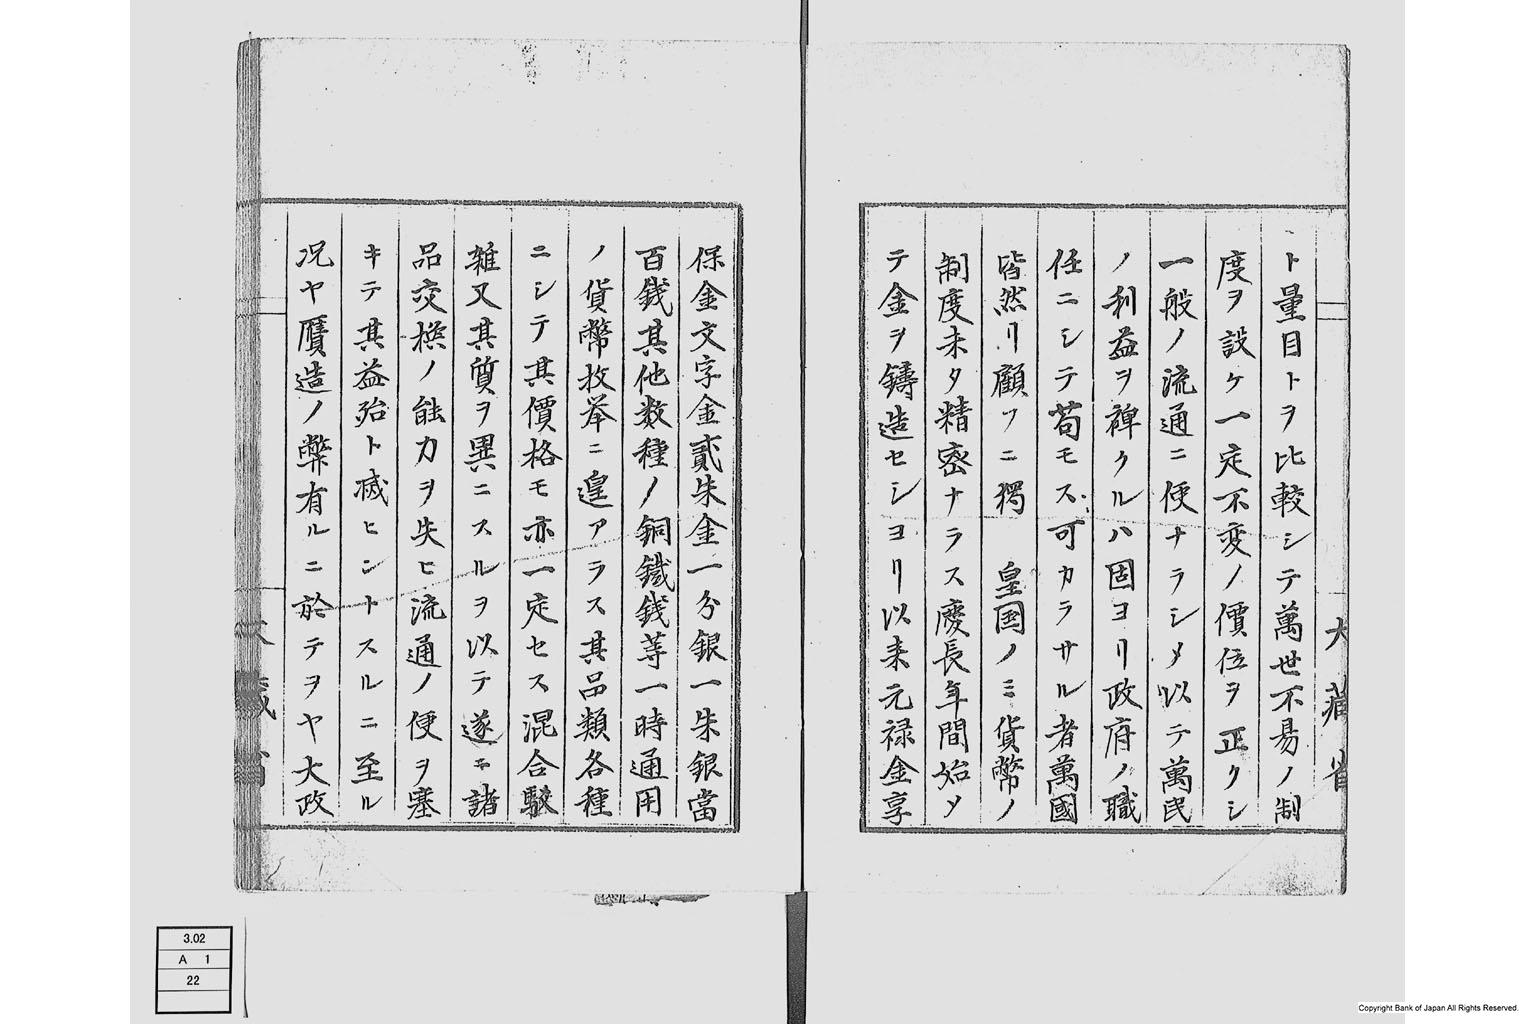 ト量目トヲ比較シテ萬世不易ノ制
度ヲ設ケ一定不変ノ價位ヲ正クシ
一般ノ流通ニ便ナラシメ以テ萬民
ノ利益ヲ裨クルハ固ヨリ政府ノ職
任ニシテ苟モス可カラサル者萬國
皆然リ顧フニ獨 皇國ノミ貨幣ノ
制度未タ精密ナラス慶長年間始メ
テ金ヲ鑄造セシヨリ以来元禄金享
大藏省
保金文字金貳朱金一分銀一朱銀當
百錢其他数種ノ銅鐡錢等一時通用
ノ貨幣枚挙ニ遑アラス其品類各種
ニシテ其價格モ亦一定セス混合駁
雜又其質ヲ異ニスルヲ以テ遂ニ諸
品交換ノ能力ヲ失ヒ流通ノ便ヲ塞
キテ其益殆ト滅ヒントスルニ至ル
况ヤ贋造ノ弊有ルニ於テヲヤ大政
大藏省
3.02
A 1
22
Copyright Bank of Japan All Rights Reserved.